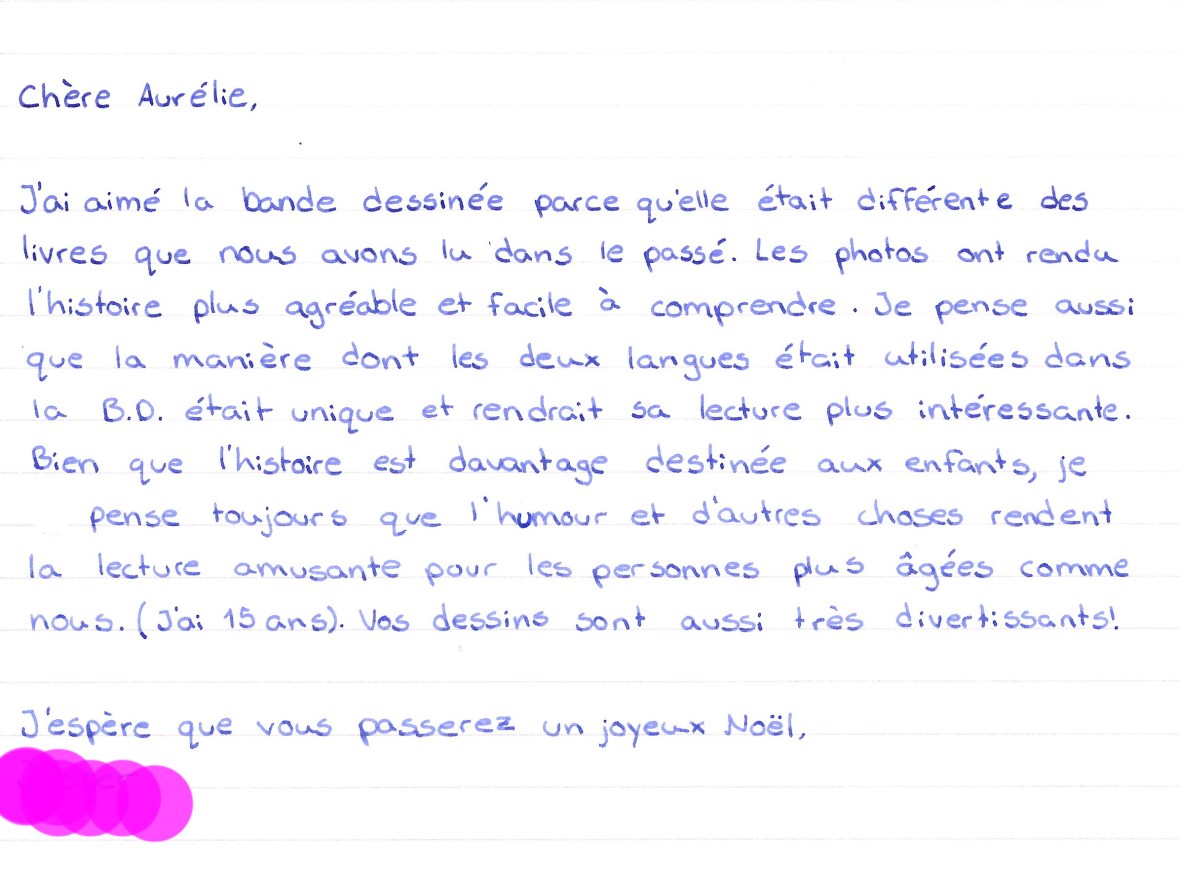 Chère Aurélie,
J'ai aimé la bande dessinée parce qu'elle était différente des
livres que nous avons lu dans le passé. Les photos ont rendu
l'histoire plus agréable et facile à comprendre. Je pense aussi
que la manière dont les deux langues était utilisées dans
la B.D. était unique et rendrait sa lecture plus intéressante.
Bien que l'histoire est davantage destinée aux enfants, je
pense toujours que l'humour et d'autres choses rendent
la lecture amusante pour les personnes plus âgées comme
nous. (J'ai 15 ans). Vos dessins sont aussi très divertissants!
J'espère que vous passerez un joyeux Noël,